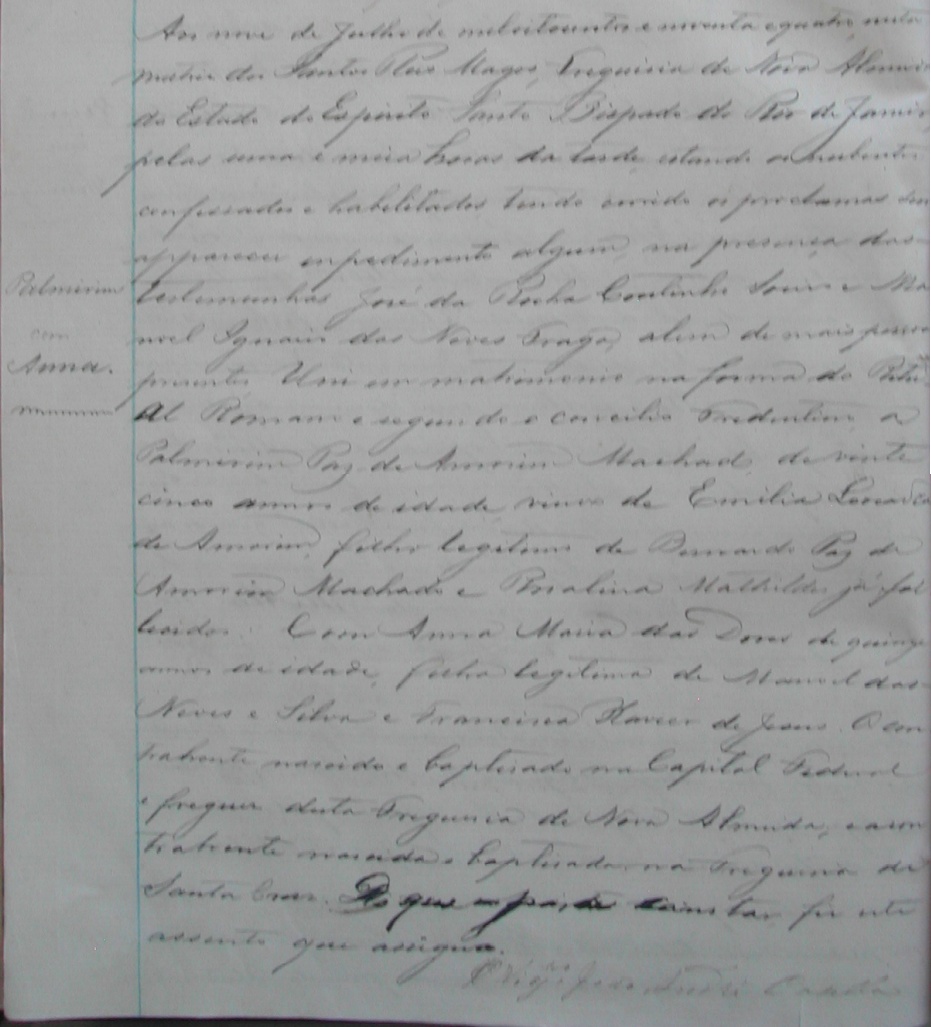 Aos nove de Julho de mil oitocentos e noventa e quatro, nesta
matriz dos Santos Reis Magos, Freguisia de Nova Almeida
do Estado do Espirito Santo Bispado do Rio de Janeiro,
pelas uma e meia horas da tarde, estando os nubentes
confessados e habilitados tendo corrido os proclamas sem
apparecer impedimento algum, na presença das
testemunhas José da Rocha Coutinho e Ma
noel Ignacio das Neves Fraga, alem de mais pessoas
presentes Uni em matrimonio na forma do Ritu
al Romano e segundo o concilio Tredentino, a
Palmerim Paz de Amorim Machado, de vinte
cinco annos de idade, viuvo de Emilia
de Amorim, filho legitimo de Bernardo Paz de
Amorim Machado e Rosalina Mathildes já fal
lecidos. Com Anna Maria das Dores de quinze
annos de idade, filha legitima de Manoel das
Neves e Silva e Francisca Xavier de Jesus. O con
trahente nascido e baptisado na Capital Federal
e freguez desta Freguesia de Nova Almeida, e a con
trahente nascida e baptisada na Freguesia de
Santa Cruz. Do que para constar fiz este
assento que assigno.
Palmerim
com
Anna.